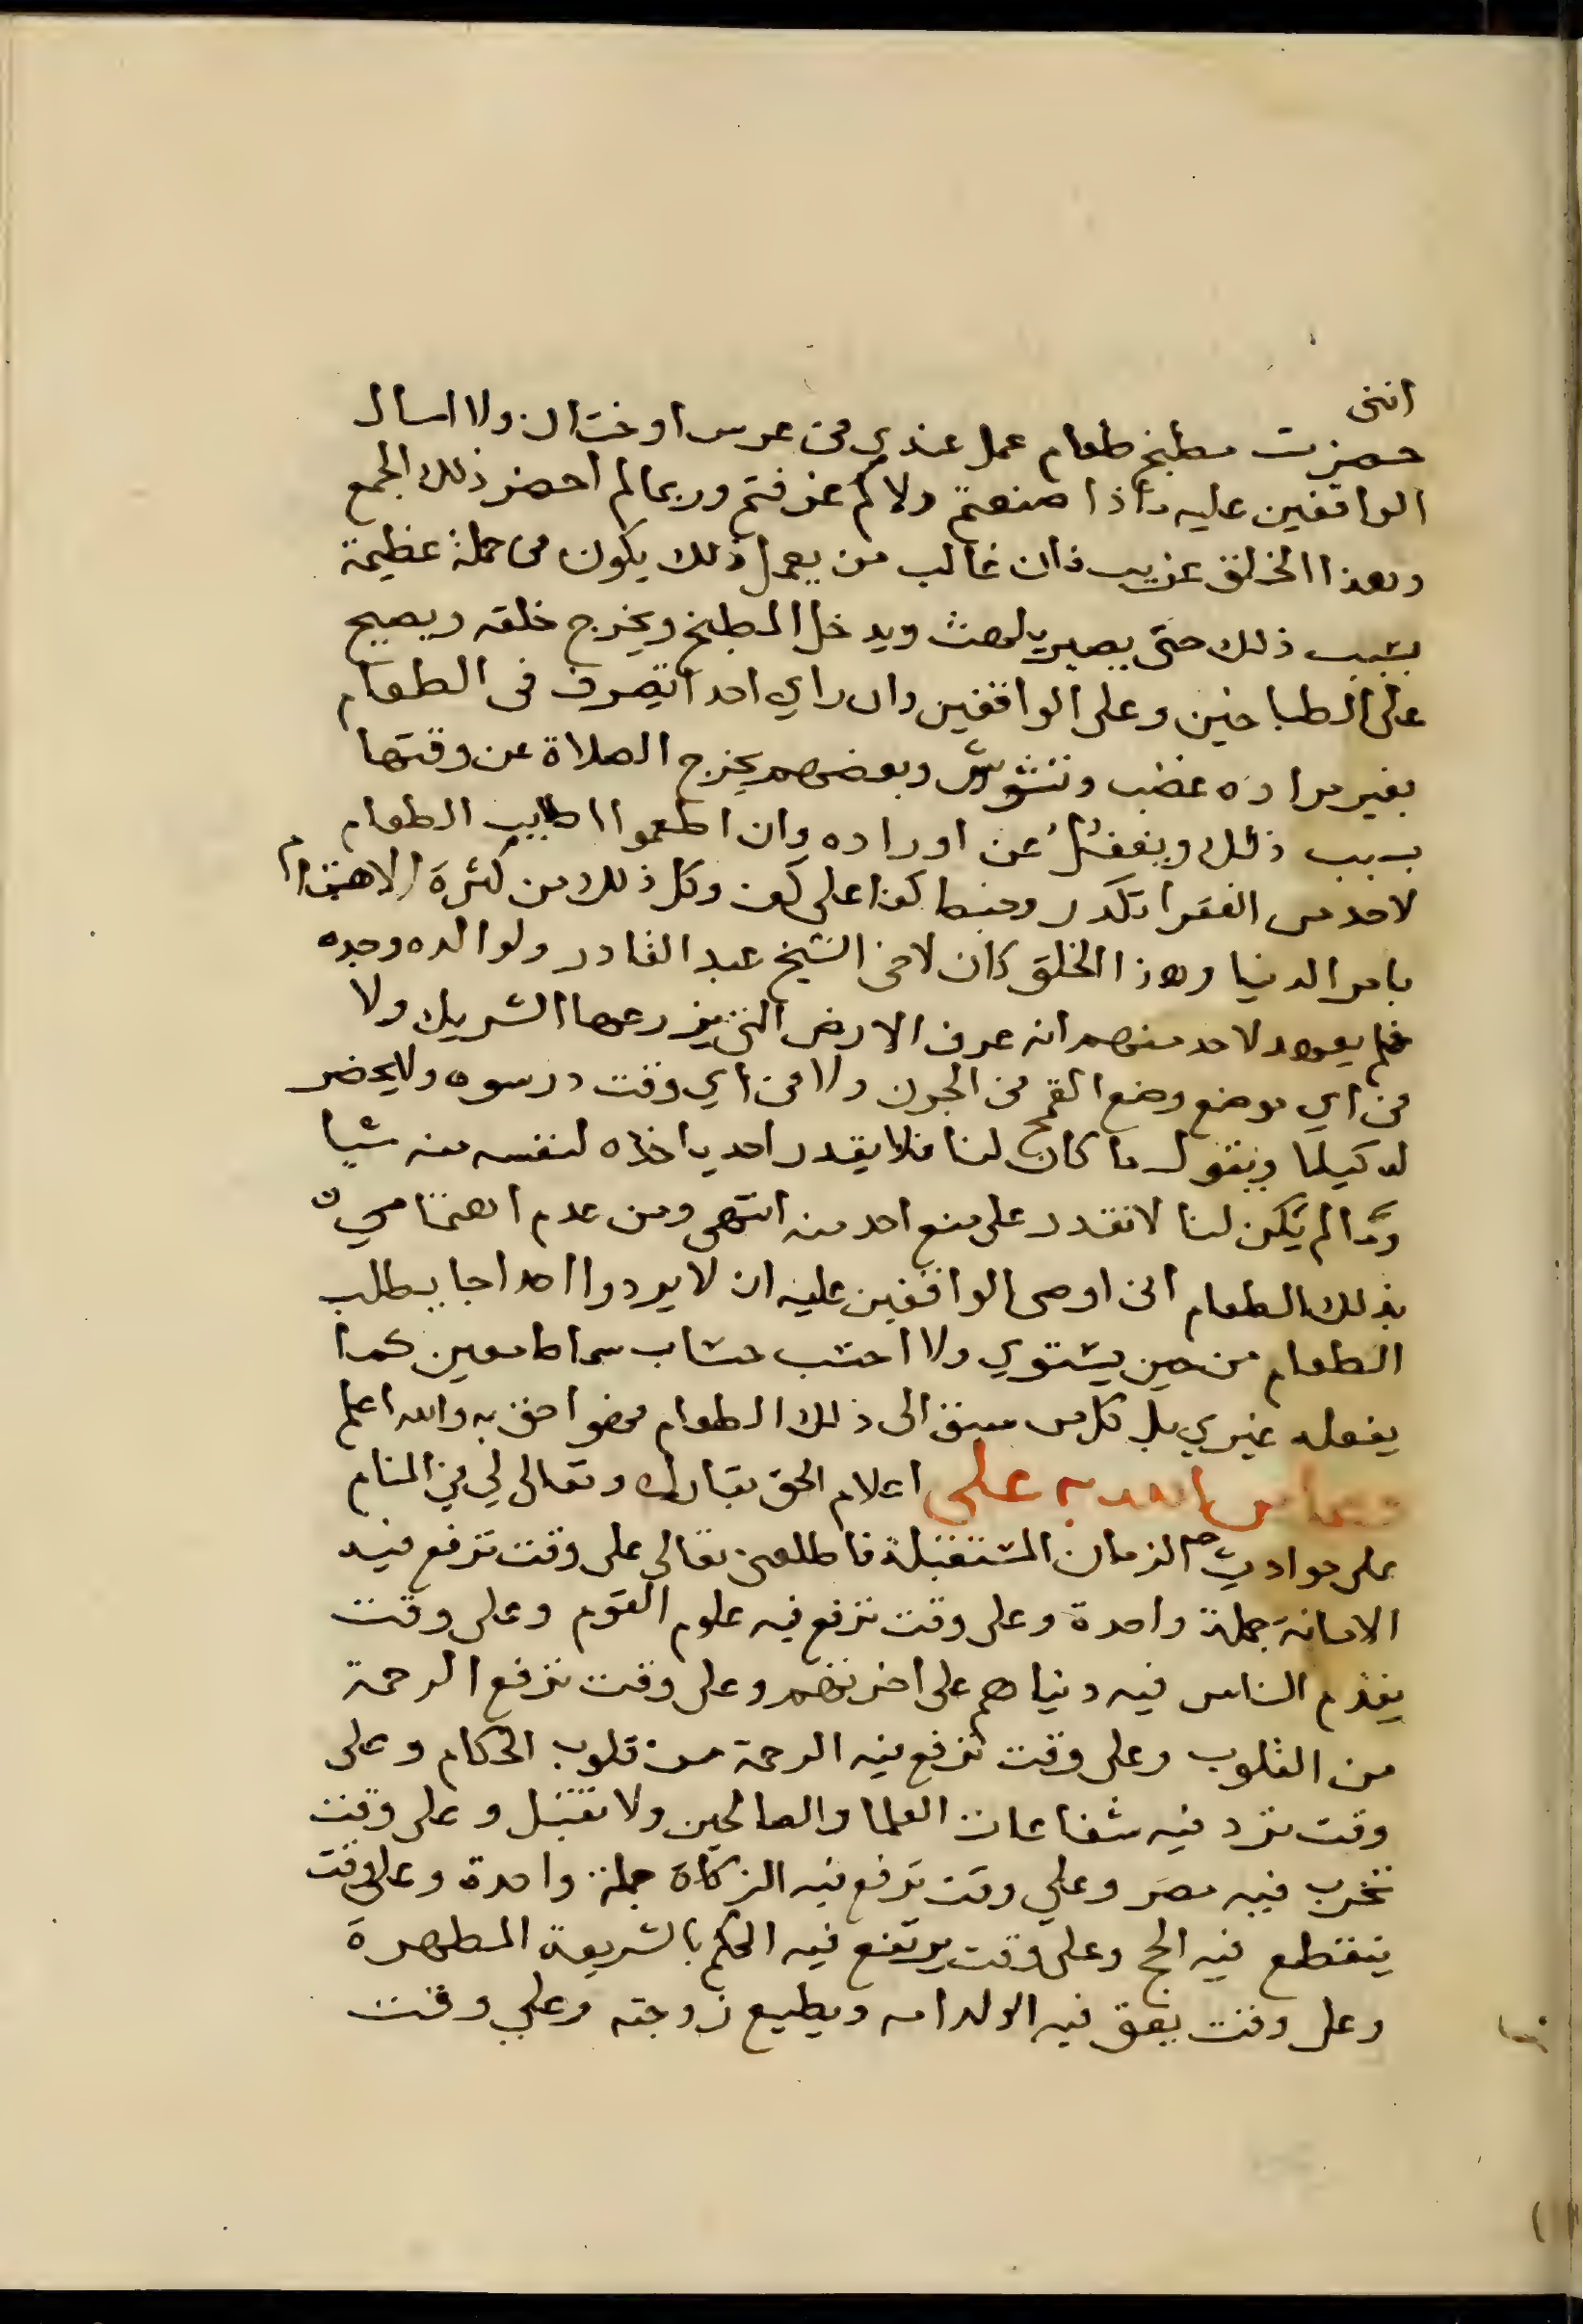 انني
حضرت مطبخ طعام عمل عندي في عرس او ختان ولا اسال
الواقفين عليه ماذا صنعتم ولا كم غرفتم وربما لم احضر ذلك الجمع
وهذا الخلق غريب فان غالب من يعمل ذلك يكون في حملة عظيمة
بسبب ذلك حتى يصير يلهث ويدخل المطبخ ويخرج خلقه ويصيح
على الطباخين وعلى الواقفين وان راي احدا يتصرف في الطعام
بغير مراده غضب وتشوش وبعضهم يخرج الصلاة عن وقتها
بسبب ذلك ويغفل عن اوراده وان اطعموا اطايب الطعام
لاحد من الفقرا تكدر وخبط كفا على كف وكل ذلك من كثرة الاهتمام
بامر الدنيا وهذا الخلق كان لاخي الشيخ عبد القادر ولوالده وجده
فلم يعهد لاحد منهم انه عرف الارض التي يزرعها الشريك ولا
في اي موضع وضع القمح في الجرن ولا في اي وقت درسوه ولا يحضر
له كيلا ويقول ما كان لنا فلا يقدر احد ياخذه لنفسه منه شيا
وما لم يكن لنا لا نقدر على منع احد منه انتهى ومن عدم اهتمامي
بذلك الطعام اني اوصي الواقفين عليه ان لا يردوا احدا جا يطلب
الطعام من حين يستوي ولا احسب حساب سماط معين كما
يفعله غيري بل كل من سبق الى ذلك الطعام فهو احق به والله اعلم
ومما من الله به علي اعلام الحق تبارك وتعالى لي في المنام
على حوادث الزمان المستقبلة فاطلعني تعالى على وقت ترفع فيه
الامانة جملة واحدة وعلى وقت ترفع فيه علوم القوم وعلى وقت
يقدم الناس فيه دنياهم على اخرتهم وعلى وقت ترفع الرحمة
من القلوب وعلى وقت ترفع فيه الرحمة من قلوب الحكام وعلى
وقت ترد فيه شفاعات العلما والصالحين ولا تقبل وعلى وقت
تخرب فيه مصر وعلي وقت ترفع فيه الزكاة جملة واحدة وعلى وقت
ينقطع فيه الحج وعلى وقت يرتفع فيه الحكم بالشريعة المطهرة
وعلى وقت يعق فيه الولد امه ويطيع زوجته وعلي وقت